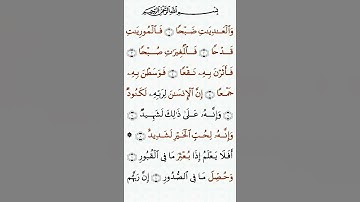 بِسْمِ اللَّهِ الرَّحْمَٰنِ الرَّحِيمِ
وَالْعَٰدِيَٰتِ ضَبْحًا ۝ فَالْمُورِيَٰتِ
قَدْحًا ۝ فَالْمُغِيرَٰتِ صُبْحًا ۝
فَأَثَرْنَ بِهِۦ نَقْعًا ۝ فَوَسَطْنَ بِهِۦ
جَمْعًا ۝ إِنَّ الْإِنسَٰنَ لِرَبِّهِۦ لَكَنُودٌ
۝ وَإِنَّهُۥ عَلَىٰ ذَٰلِكَ لَشَهِيدٌ ۝
وَإِنَّهُۥ لِحُبِّ الْخَيْرِ لَشَدِيدٌ ۝
أَفَلَا يَعْلَمُ إِذَا بُعْثِرَ مَا فِى الْقُبُورِ ۝
وَحُصِّلَ مَا فِى الصُّدُورِ ۝ إِنَّ رَبَّهُم